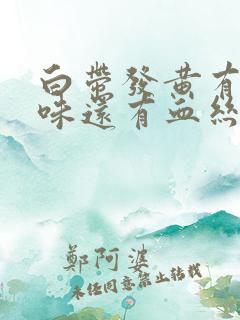 白帶發黃有
味還有血絲
鄭阿婆
未经同意禁止转载